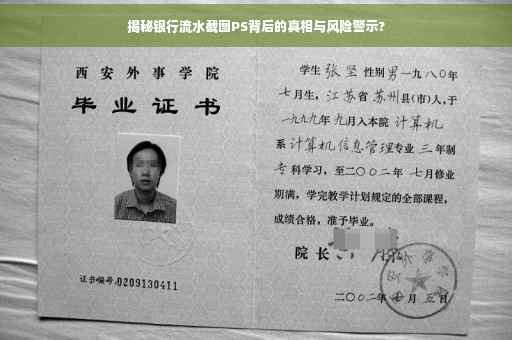 揭秘银行流水截图PS背后的真相与风险警示?
西安外事学院
毕业证书
证书编号:0209130411
学生 张坚 性别 男 一九八〇年
七月生, 江苏省 苏州县(市)人,于
一九九九年 九月入本院 计算机
系 计算机信息管理专业 三年制
专科学习,至二〇〇二年 七月修业
期满,学完教学计划规定的全部课程,
成绩合格,准予毕业。
院长
二〇〇二年 月 五日